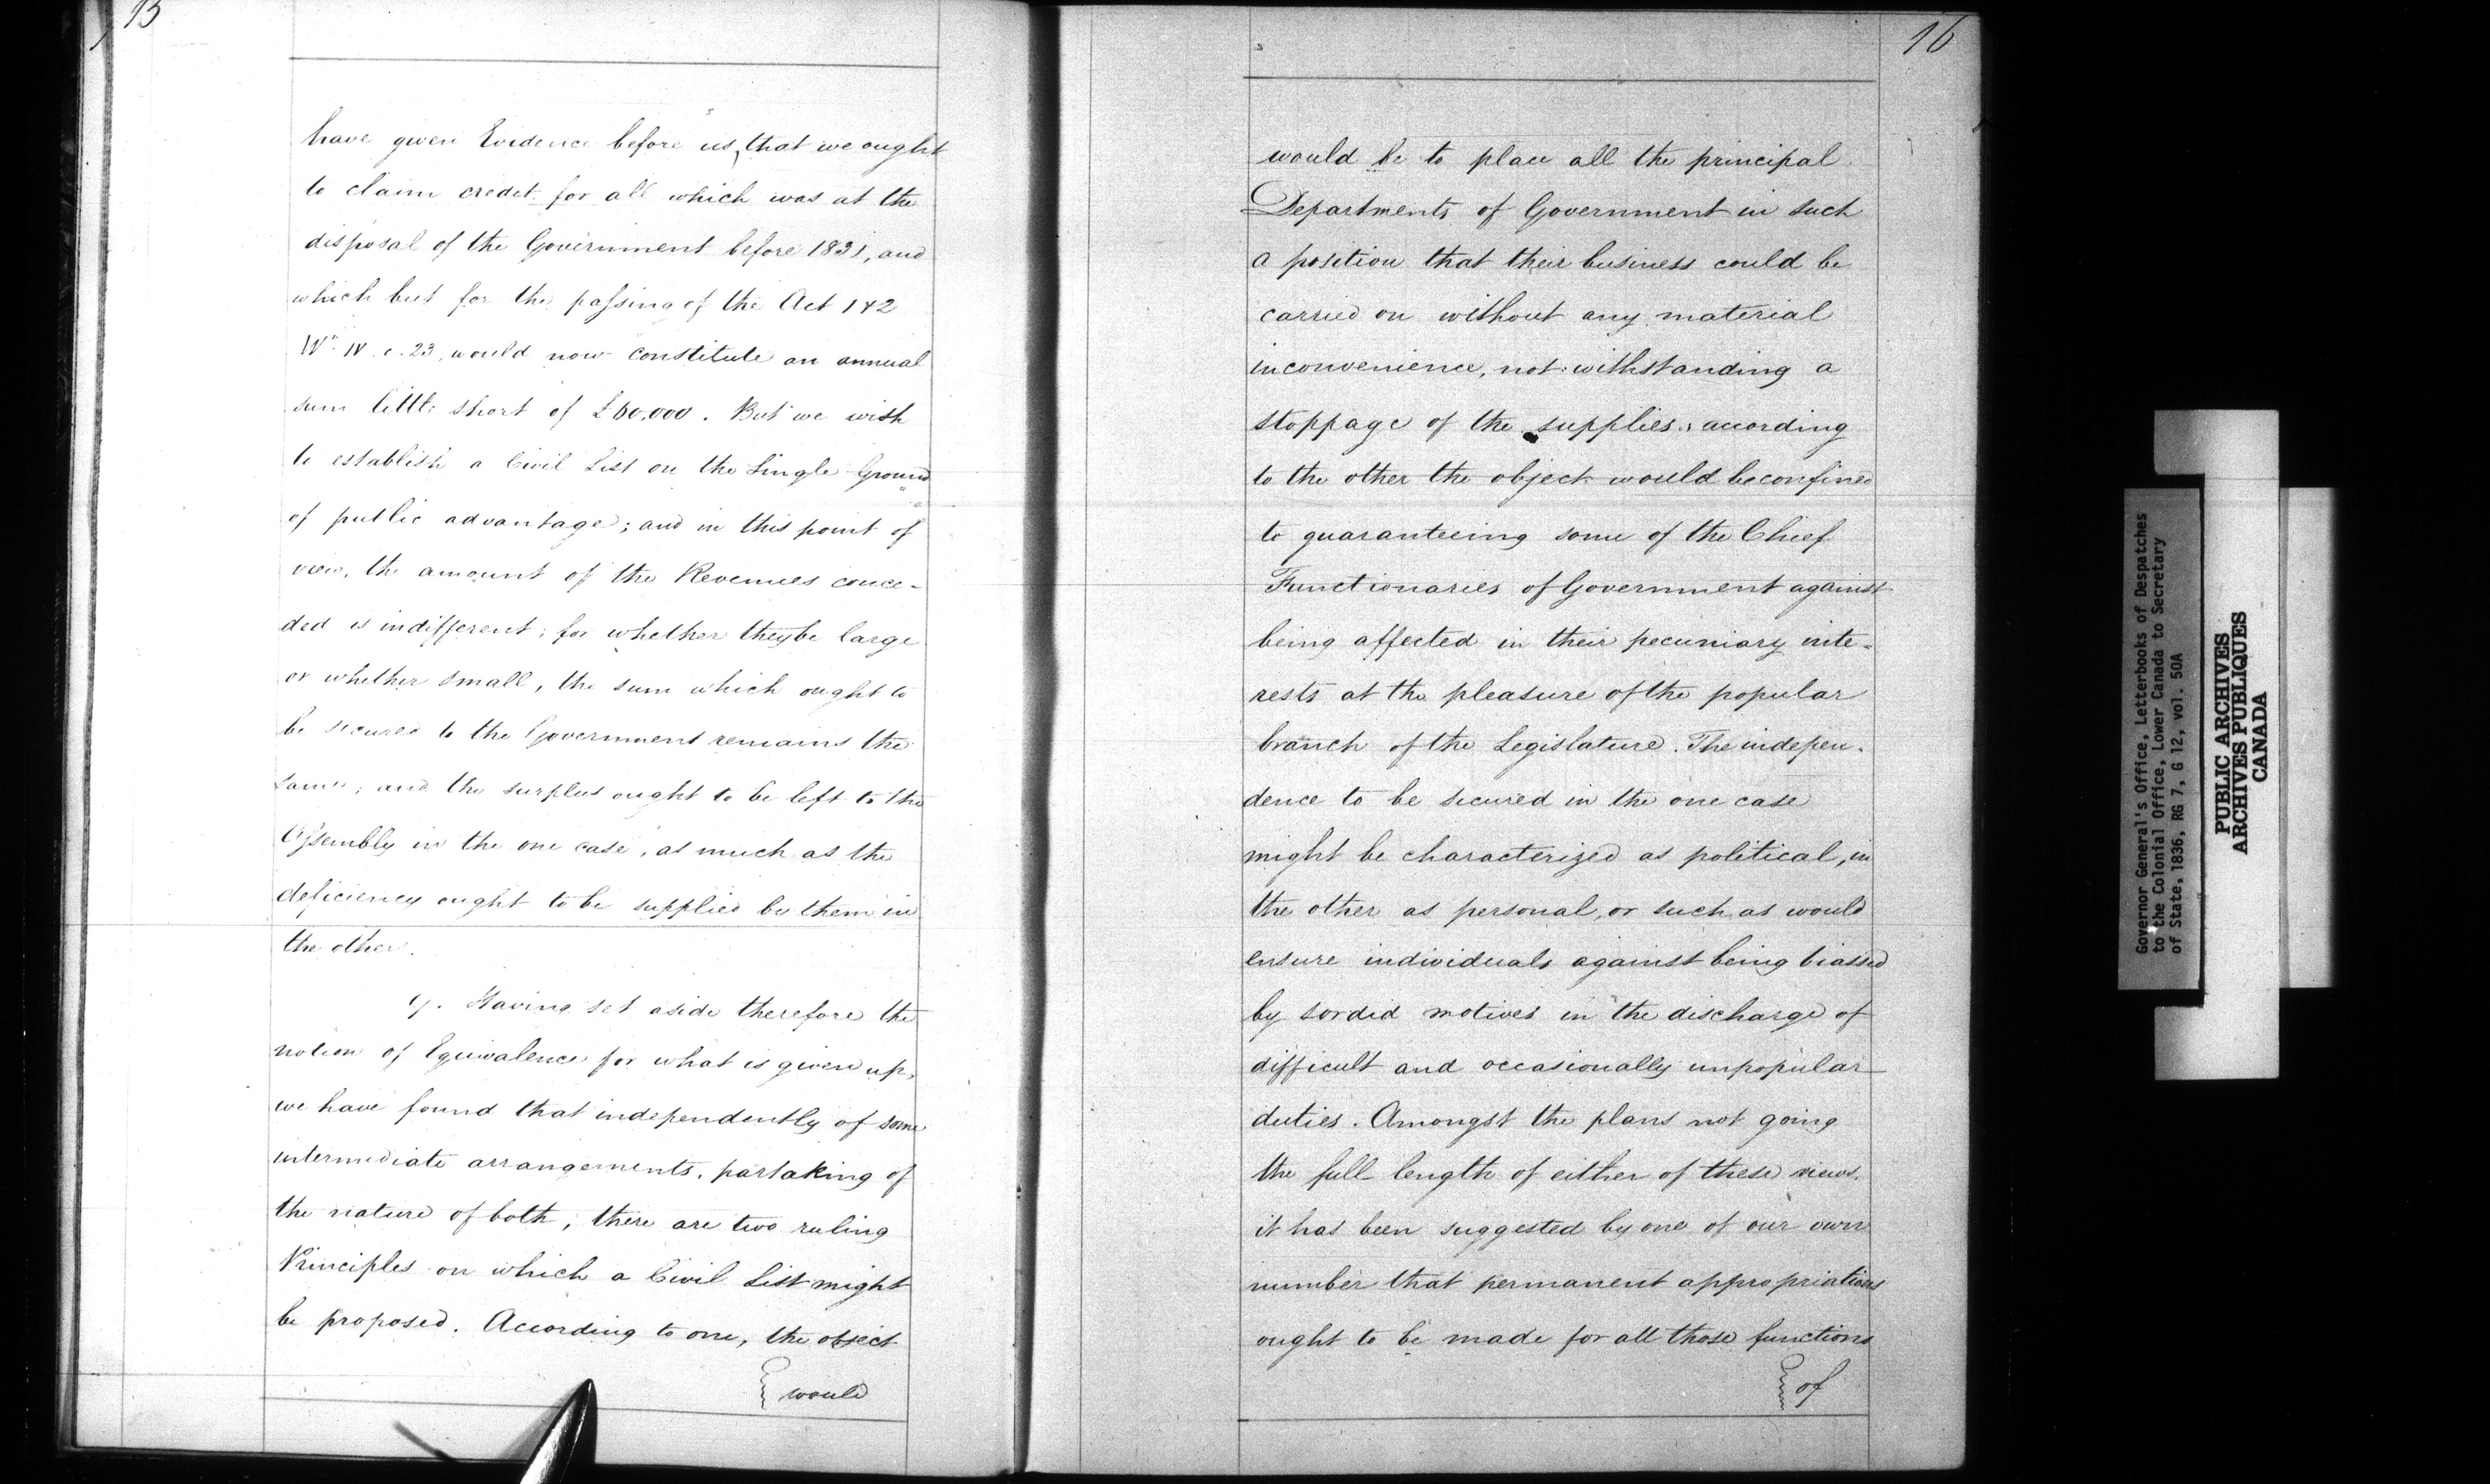 15
have given Evidence before us, that we ought
to claim credit for all which was at the
disposal of the Government before 1831, and
which but for the passing of the Act 1 & 2
Wm. IV. c. 23, would now constitute an annual
sum little short of £60,000. But we wish
to establish a Civil List on the Single Ground
of public advantage; and in this point of
view, the amount of the Revenues conce-
ded is indifferent; for whether they be large
or whether small, the sum which ought to
be secured to the Government remains the
same; and the surplus ought to be left to the
Assembly in the one case, as much as the
deficiency ought to be supplied by them in
the other.
9. Having set aside therefore the
notion of Equivalence for what is given up,
we have found that independently of some
intermediate arrangements, partaking of
the nature of both, there are two ruling
Principles on which a Civil List might
be proposed. According to one, the object
would
16
would be to place all the principal
Departments of Government in such
a position that their business could be
carried on without any material
inconvenience, not withstanding a
stoppage of the supplies: according
to the other the object would be confined
to guaranteeing some of the Chief
Functionaries of Government against
being affected in their pecuniary inte-
rests at the pleasure of the popular
branch of the Legislature. The indepen-
dence to be secured in the one case
might be characterized as political, in
the other as personal, or such as would
ensure individuals against being biassed
by sordid motives in the discharge of
difficult and occasionally unpopular
duties. Amongst the plans not going
the full length of either of these views,
it has been suggested by one of our own
number that permanent appropriations
ought to be made for all those functions
of
Governor General's Office, Letterbooks of Despatches
to the Colonial Office, Lower Canada to Secretary
of State, 1836, RG 7, G 12, vol. 50A
PUBLIC ARCHIVES
ARCHIVES PUBLIQUES
CANADA